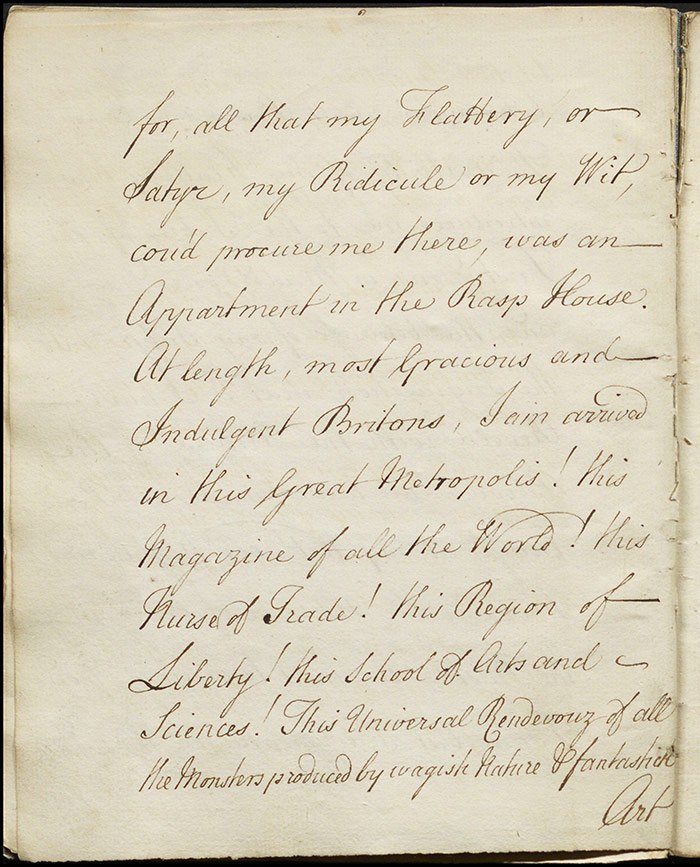 for, all that my Flattery, or
Satyr, my Ridicule or my Wit,
cou'd procure me there, was an
Appartment in the Rasp House.
At length, most Gracious and
Indulgent Britons, I am arrived
in this Great Metropolis! this
Magazine of all the World! this
Nurse of Trade! this Region of
Liberty! this School of Arts and
Sciences! This Universal Rendevouz of all
the Monsters produced by wagish Nature & fantastick
Art